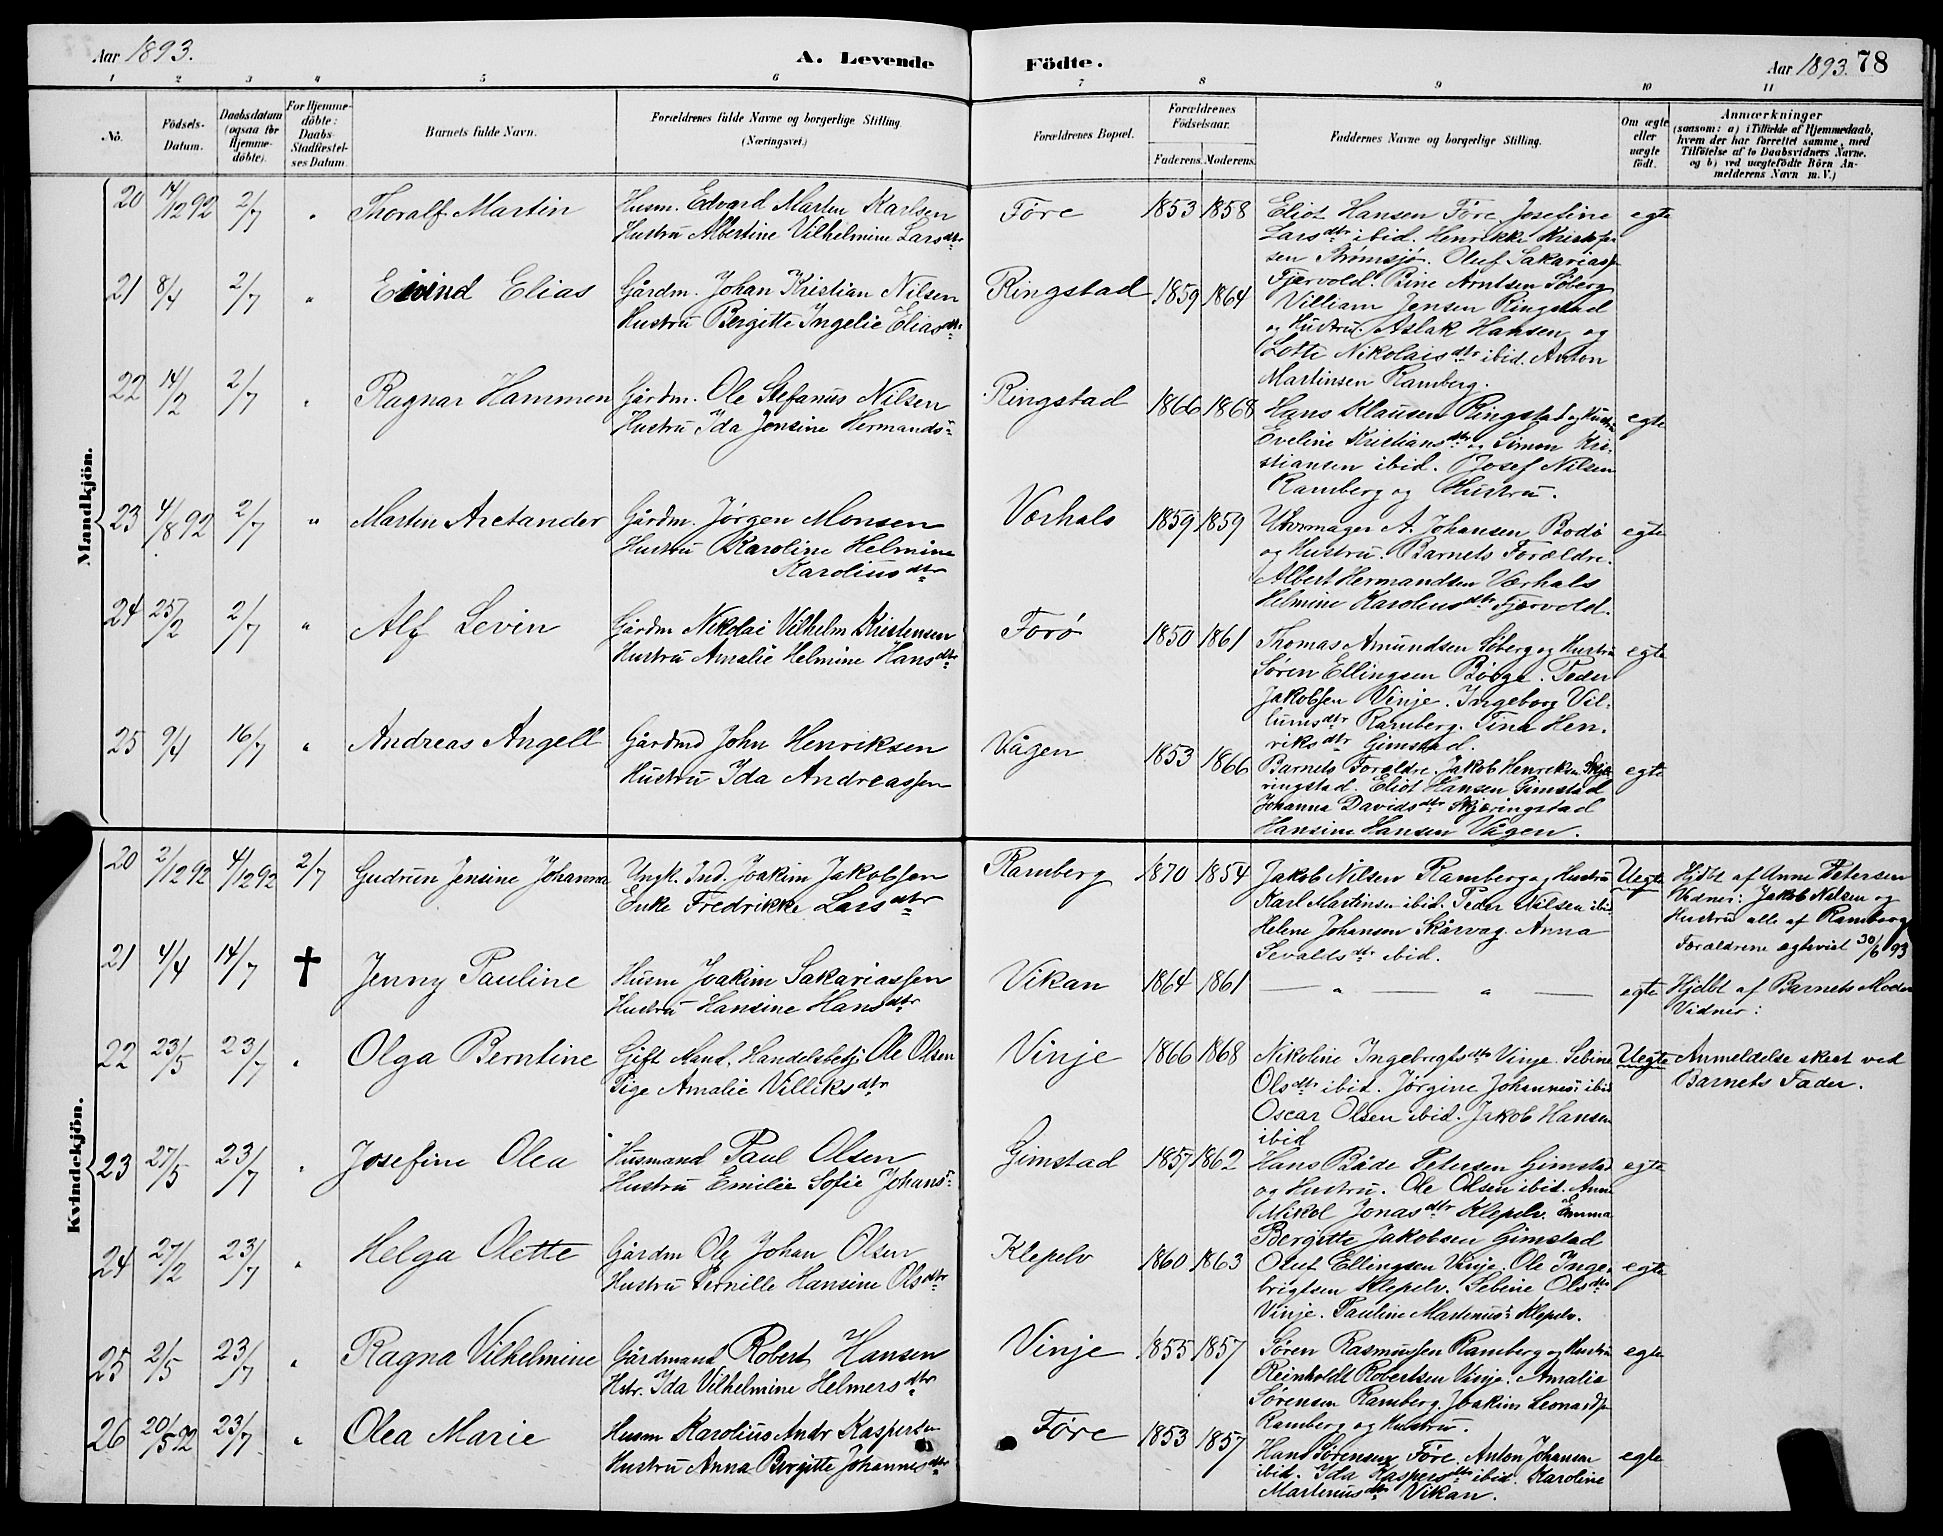 Aar 1893. A. Levende Födte. Aar 1893. 78
1 2 3 4 5 6 7 8 9 10 11
No.
Födsels-Datum.
Daabsdatum (ogsaa for Hjemme-döbte).
For Hjemme-döbte: Daabs-Stadfæstel-ses Datum.
Barnets fulde Navn.
Forældrenes fulde Navne og borgerlige Stilling. (Næringsvei.)
Forældrenes Bopæl.
Forældrenes Födselsaar.
Faderens. Moderens.
Faddernes Navne og borgerlige Stilling.
Om ægte eller uægte födt.
Anmærkninger
(saasom: a) i Tilfælde af Hjemmedaab,
hvem der har forrettet samme, med
Tilföielse af to Daabsvidners Navne.
og b) ved uægtefödte Börn An-
melderens Navn m. V.)
Mandkjön.
20 14/12 92 2/7 " Thoralf Martin Husm. Edvard Martin Karlsen Føre 1853 1858 Eliot Hansen Føre. Josefine egte
Hustru Albertine Vilhelmine Larsdtr Larsdtr ibid. Henrikke Kristofer
sen Strømsjø. Oluf Sakariass.
21 8/4 2/7 " Eivind Elias Gårdm. Johan Kristian Nilsen Ringstad 1859 1864 Fjærvold. Pine Arntsen Søberg
Hustru Bergitte Ingelie Eliasdtr Villiam Jensen Ringstad
og Hustru. Aslak Hansen og
Lotte Nikolaisdtr ibid. Anton
Martinsen Ramberg.
22 14/2 2/7 " Ragnar Hammen Gårdm. Ole Stefanus Nilsen Ringstad 1866 1868 Hans Klausen Ringstad og Hustru egte
Hustru Ida Jensine Hermands" Eveline Kristiansdtr og Simon Kri-
stiansen ibid. Josef Nilsen
Ramberg og Hustru.
23 4/8 92 2/7 " Martin Aretander Gårdm. Jørgen Monsen Værhals 1859 1859 Uhrmager A. Johansen Bodø egte
Hustru Karoline Helmine og Hustru. Barnets Forældre.
Karoliusdtr Albert Hermandsen Værhals
Helmine Karoliusdtr Fjærvold.
24 25/2 2/7 " Alf Levin Gårdm Nikolai Vilhelm Kristensen Forø 1850 1861 Thomas Amundsen Søberg og Hustru egte
Hustru Amalie Helmine Hansdtr Søren Ellingsen Bøoge. Peder
Jakobsen Vinje. Ingeborg Vil-
lumsdtr Ramberg. Tina Hen-
riksdtr Gimstad.
25 9/4 16/7 " Andreas Angell Gårdmd John Henriksen Vågen 1853 1866 Barnets Forældre. Jakob Henriksen Skjæ- egte
Hustru Ida Andreassen ringstad. Eliot Hansen Gimstad
Johanna Davidsdtr Skjæringstad
Hansine Hansen Vågen.
Kvindekjön.
20 2/12 92 4/12 92 2/7 Gudrun Jensine Johanna Ungk. Ind. Joakim Jakobsen Ramberg 1870 1854 Jakob Nilsen Ramberg og Hustru Uegte Hjdbt af Anne Petersen
Enke Fredrikke Larsdtr Karl Martinsen ibid. Peder Nilsen ibid Vidner: Jakob Nilsen og
Helene Johansen Skårvag. Anna Hustru alle af Ramberg
Sevaldsdtr ibid. Forældrene egteviet 30/6 93
21 4/4 14/7 † Jenny Pauline Husm Joakim Sakariassen Vikan 1864 1861 — " — " — egte Hjdbt af Barnets Moder
Hustru Hansine Hansdtr Vidner:
22 23/5 23/7 " Olga Berntine Gift Mand, Handelsbetj. Ole Olsen Vinje 1866 1868 Nikoline Ingebrigtsdtr Vinje. Sebine Uegte Anmeldelse skeet ved
Pige Amalie Villiksdtr Olsdtr ibid. Jørgine Johannes" ibid Barnets Fader.
Oscar Olsen ibid. Jakob Hansen
ibid
23 27/5 23/7 " Josefine Olea Husmand Paul Olsen Gimstad 1857 1862 Hans Både Petersen Gimstad egte
Hustru Emilie Sofie Johans" og Hustru. Ole Olsen ibid. Anne
Mikol Jonasdtr Klepelv. Emma
Bergitte Jakobsen Gimstad
24 27/2 23/7 " Helga Olette Gårdm Ole Johan Olsen Klepelv 1860 1863 Olut Ellingsen Vinje. Ole Inge- egte
Hustru Pernille Hansine Olsdtr brigtsen Klepelv. Sebine Olsdtr
Vinje. Pauline Martinus" Klepelv.
25 2/5 23/7 " Ragna Vilhelmine Gårdmand Robert Hansen Vinje 1855 1857 Søren Rasmussen Ramberg og Hustru egte
Hstr. Ida Vilhelmine Helmersdtr Reinholdt Robertsen Vinje. Amalia
Sørensen Ramberg. Joakim Leonards.
Ramberg og Hustru.
26 20/5 92 23/7 " Olea Marie Husm Karolius Andr Kaspersen Føre 1853 1857 Hans Sørensen Føre. Anton Johansen egte
Hustru Anna Bergitte Johannesdtr ibid. Ida Kaspersdtr ibid. Karoline
Martinusdtr Vikan.